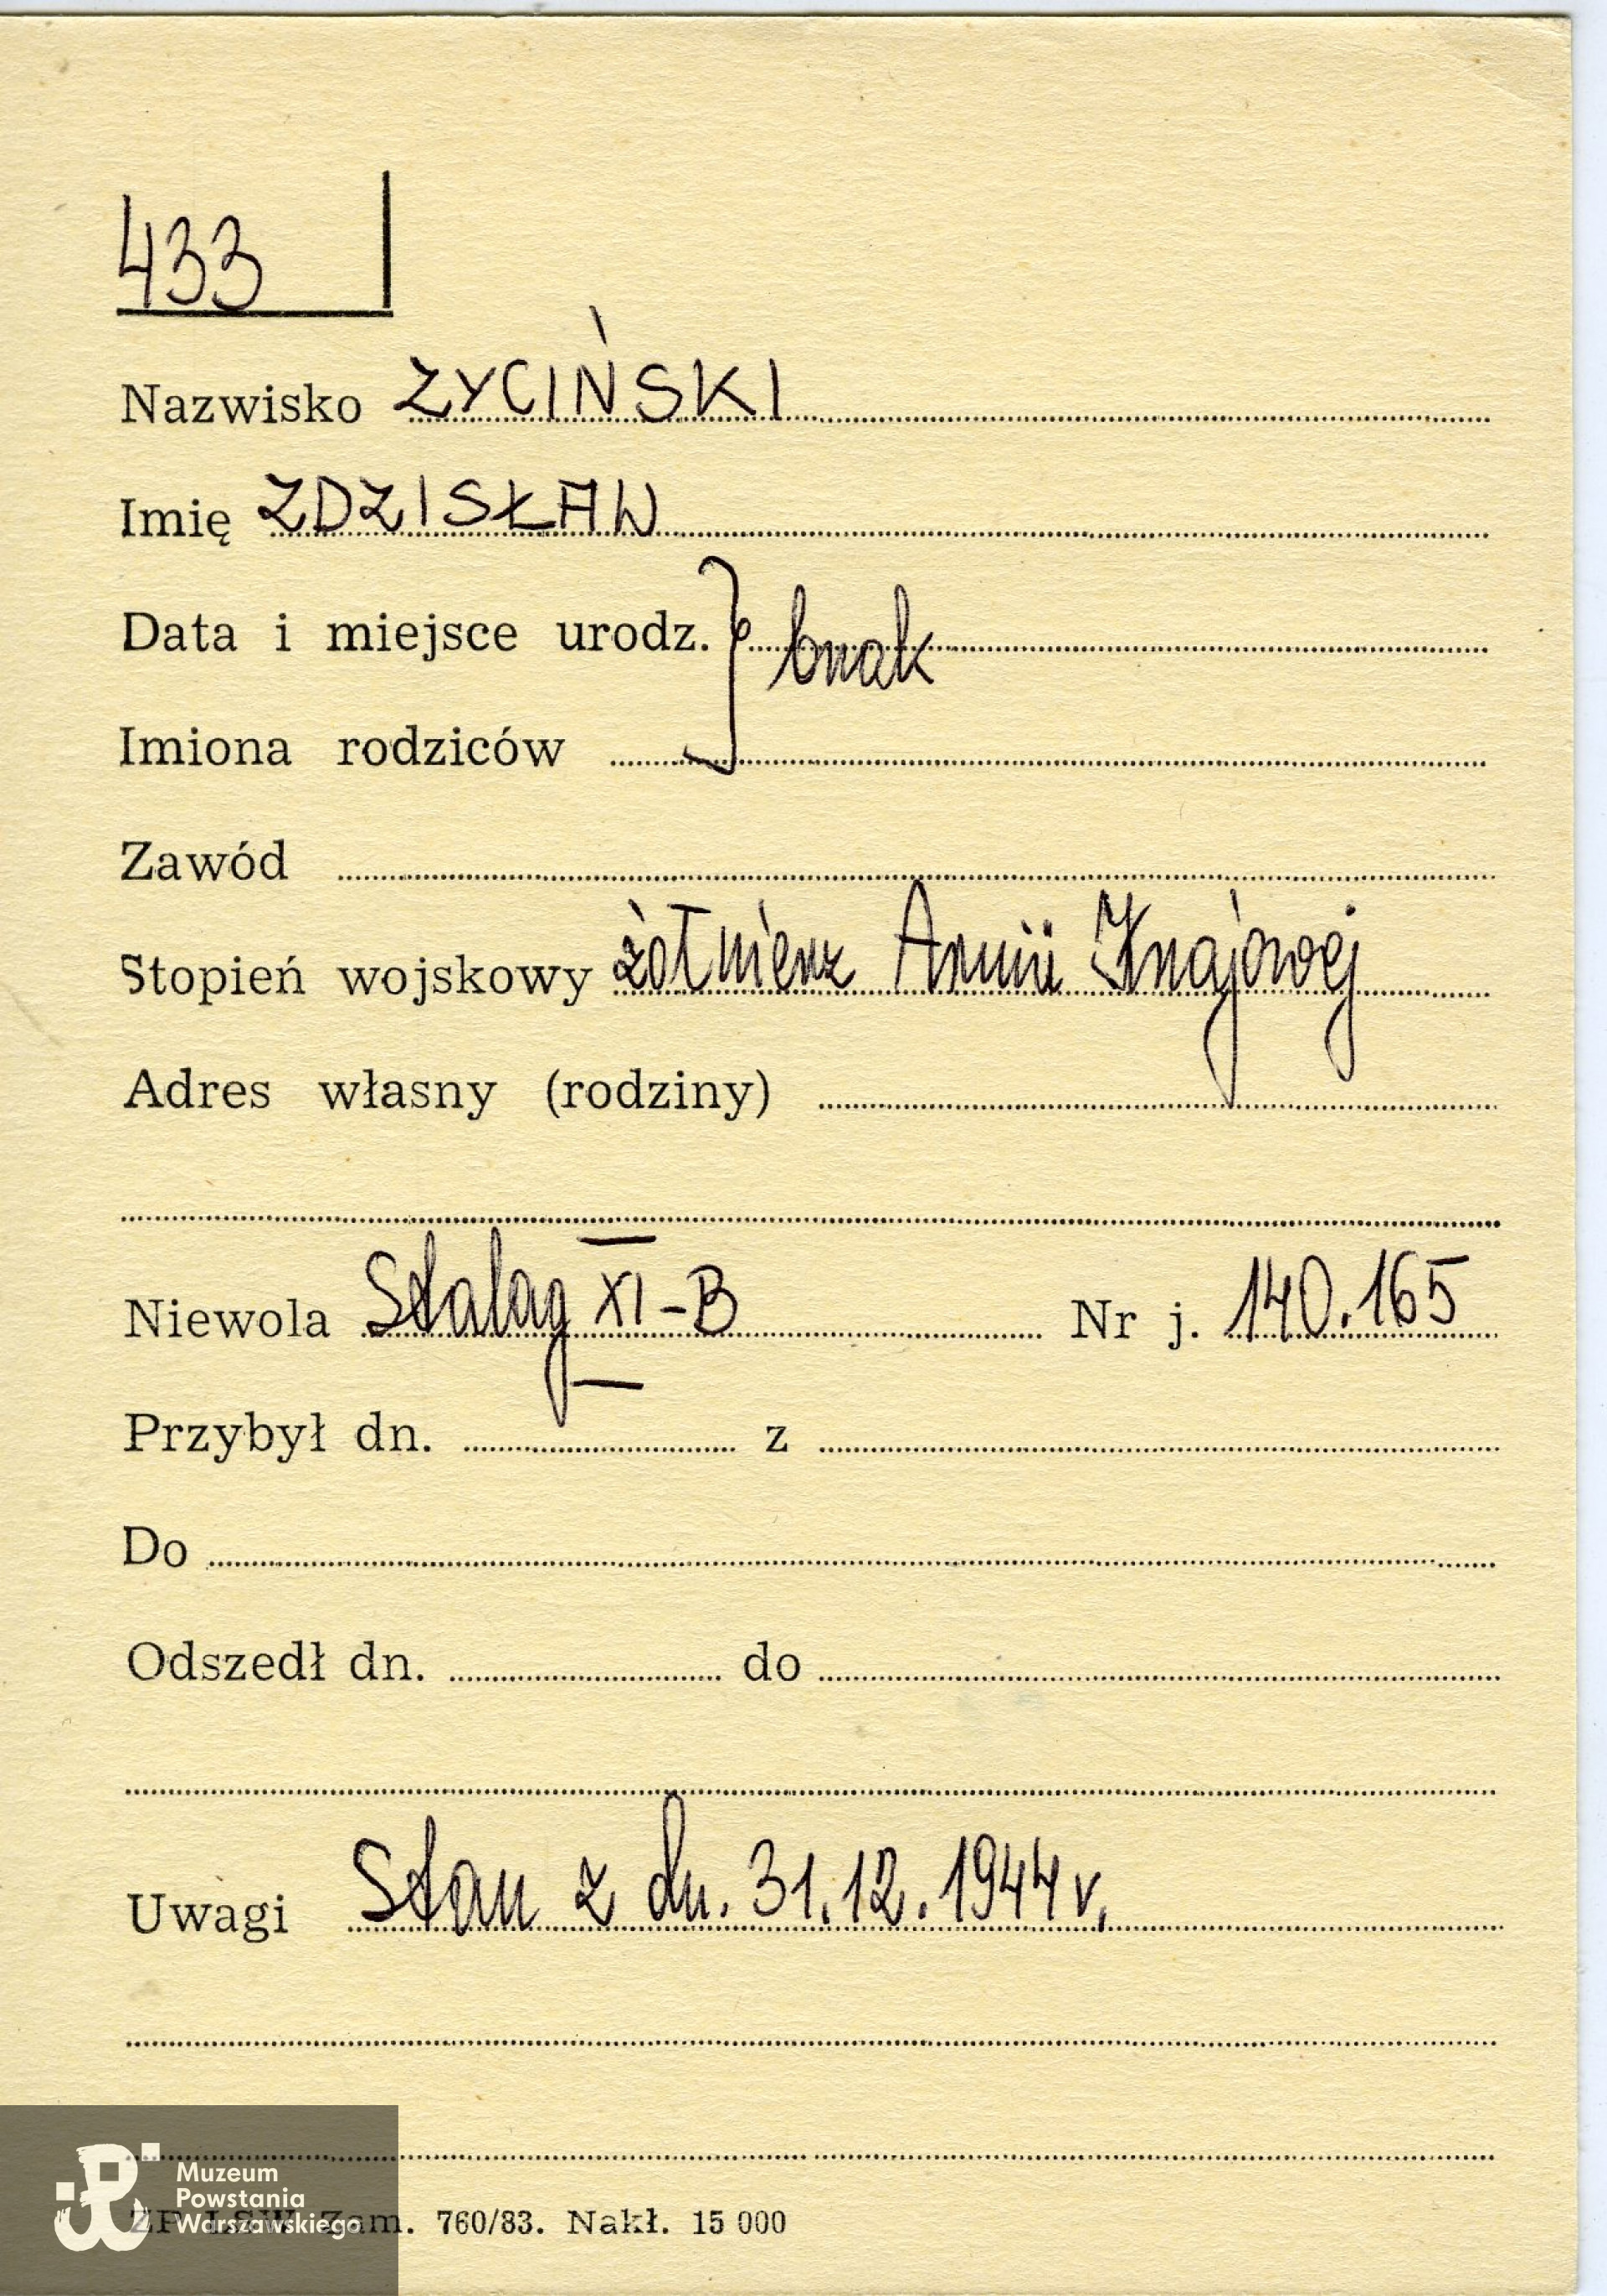 433
Nazwisko ZYCIŃSKI
Imię ZDZISŁAW
Data i miejsce urodz. } brak
Imiona rodziców
Zawód
Stopień wojskowy żołnierz Armii Krajowej
Adres własny (rodziny)
Niewola Stalag XI-B Nr j. 140.165
Przybył dn. z
Do
Odszedł dn. do
Uwagi Stan z dn. 31.12.1944 r.
Muzeum
Powstania
Warszawskiego
ZP LSW Zam. 760/83. Nakł. 15 000